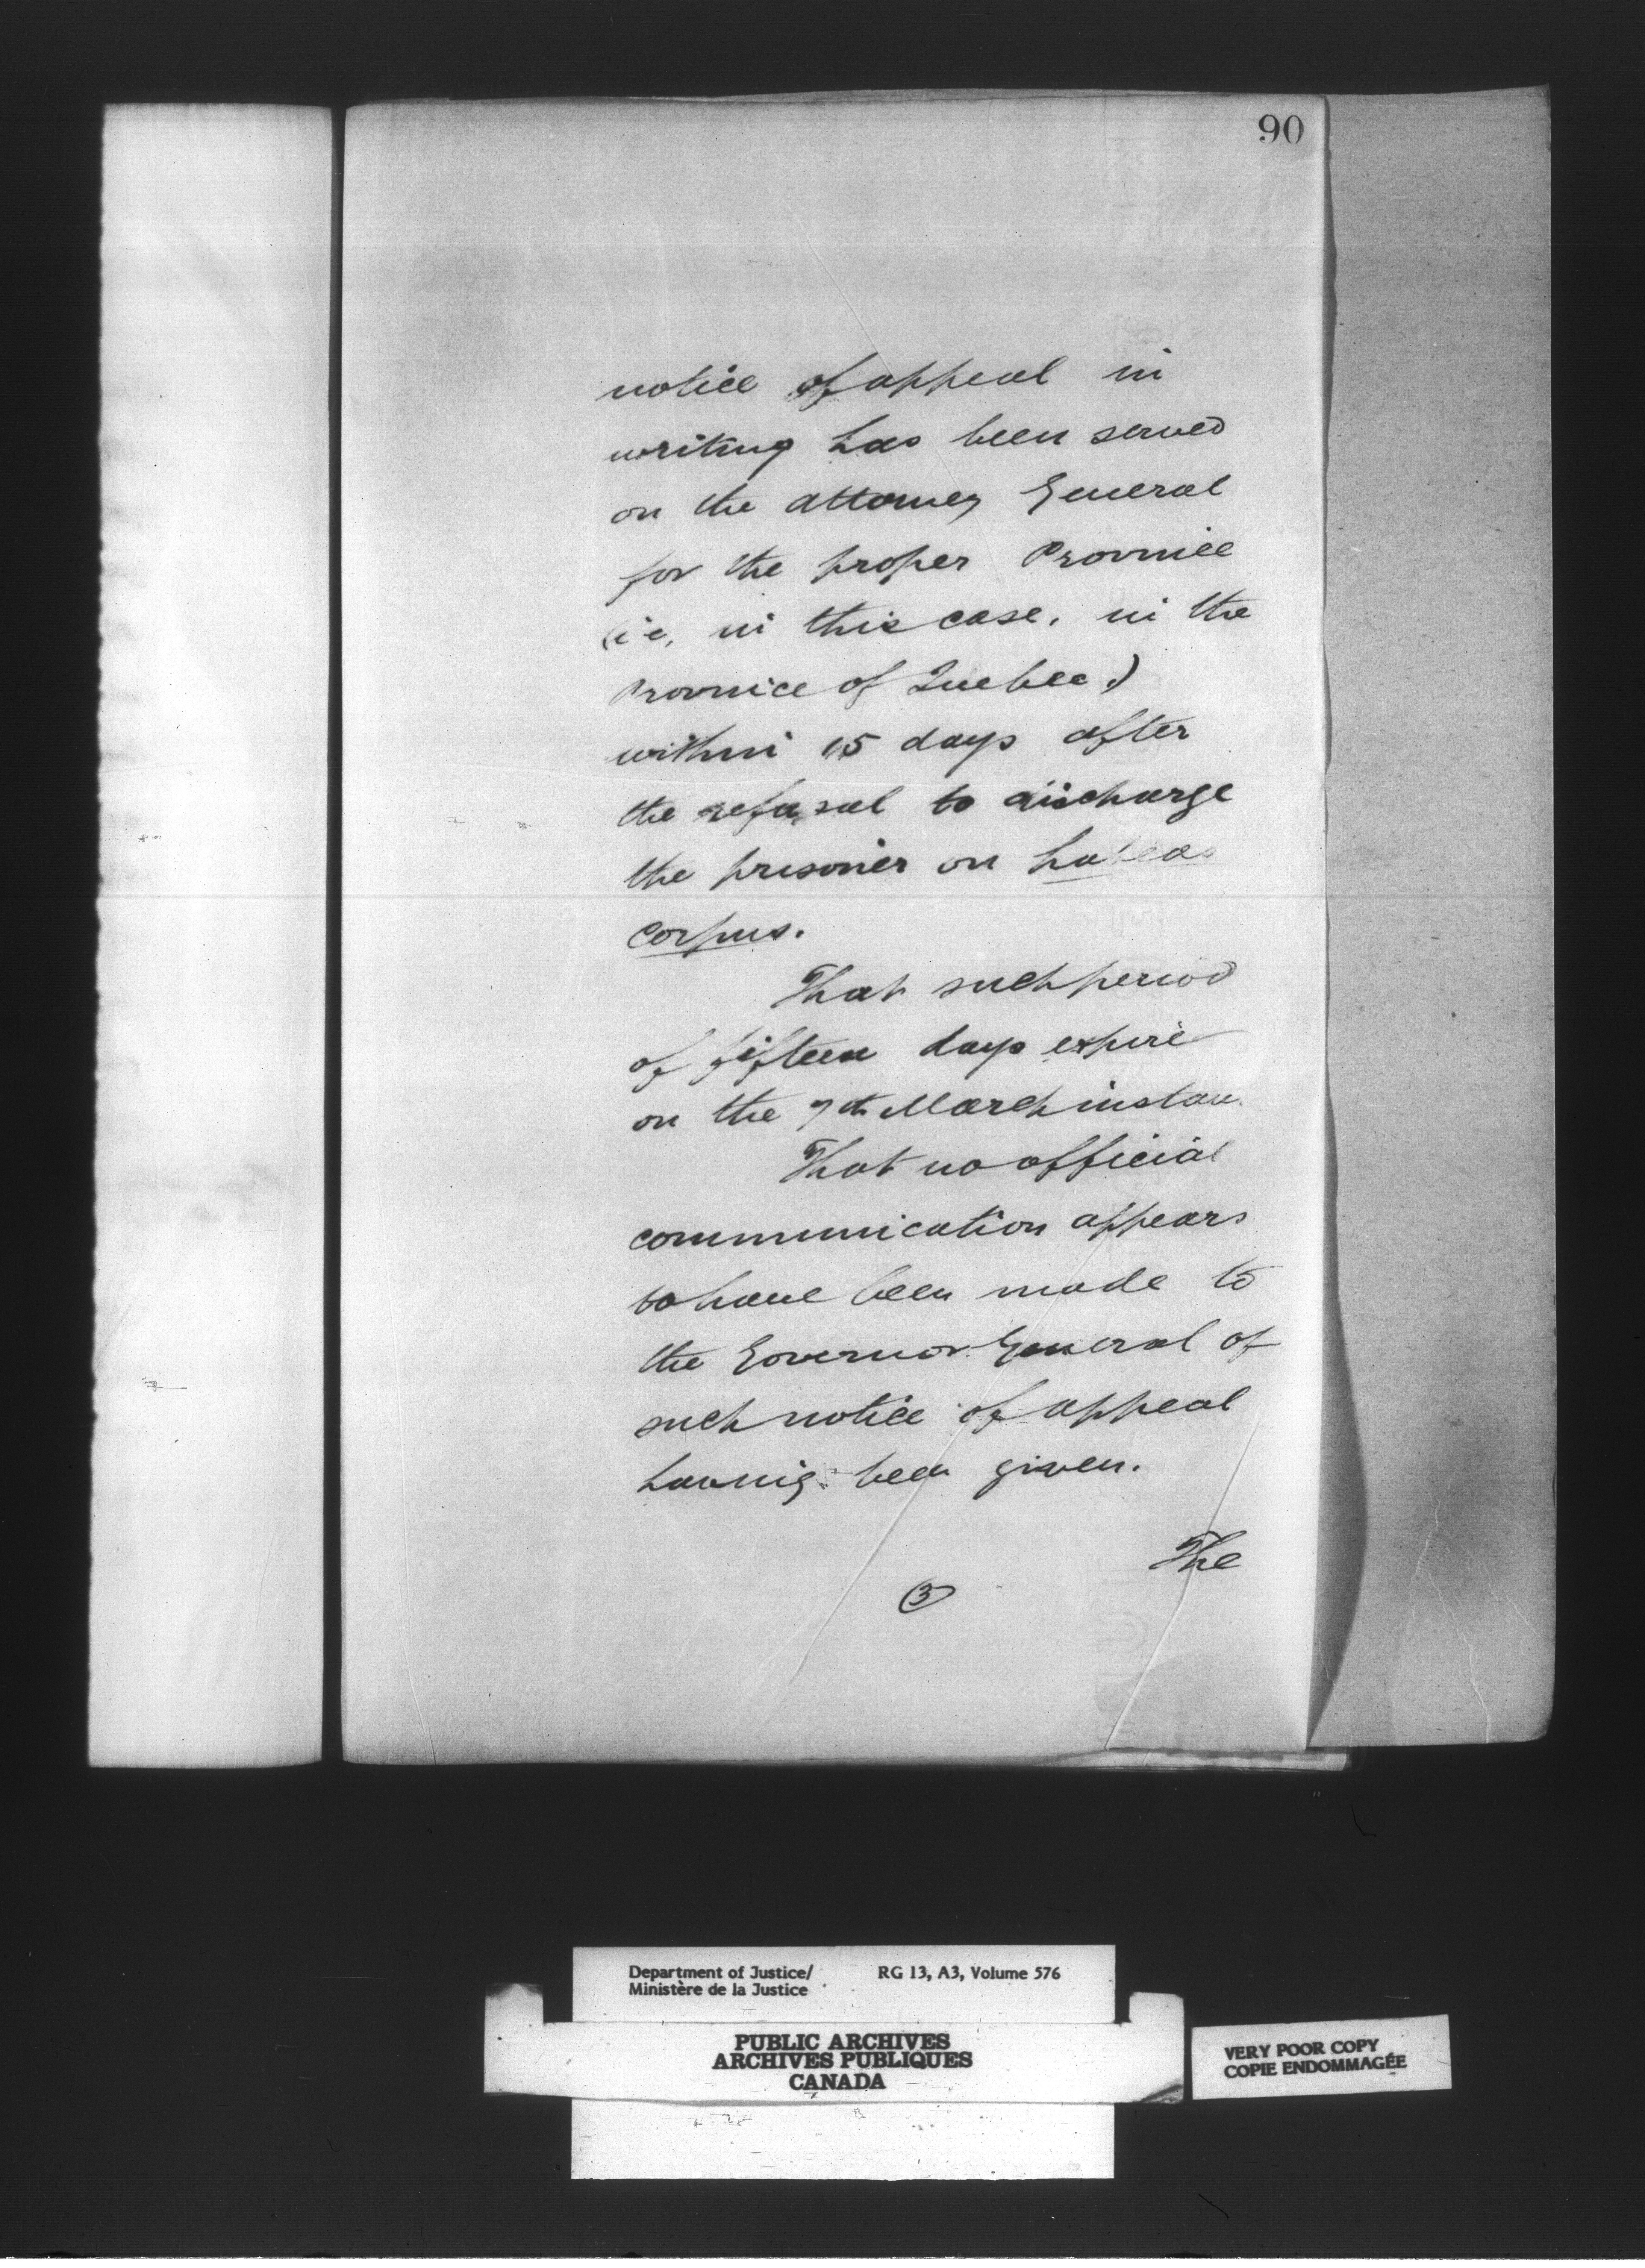 90
notice of appeal in
writing has been served
on the Attorney General
for the proper Province
(i e, in this case, in the
Province of Quebec.)
within 15 days after
the refusal to discharge
the prisoner on habeas
corpus.
That such period
of fifteen days expire
on the 7th March instan
That no official
communication appears
to have been made to
the Governor General of
such notice of appeal
having been given.
The
3
Department of Justice/ RG 13, A3, Volume 576
Ministère de la Justice
PUBLIC ARCHIVES
ARCHIVES PUBLIQUES
CANADA
VERY POOR COPY
COPIE ENDOMMAGÉE